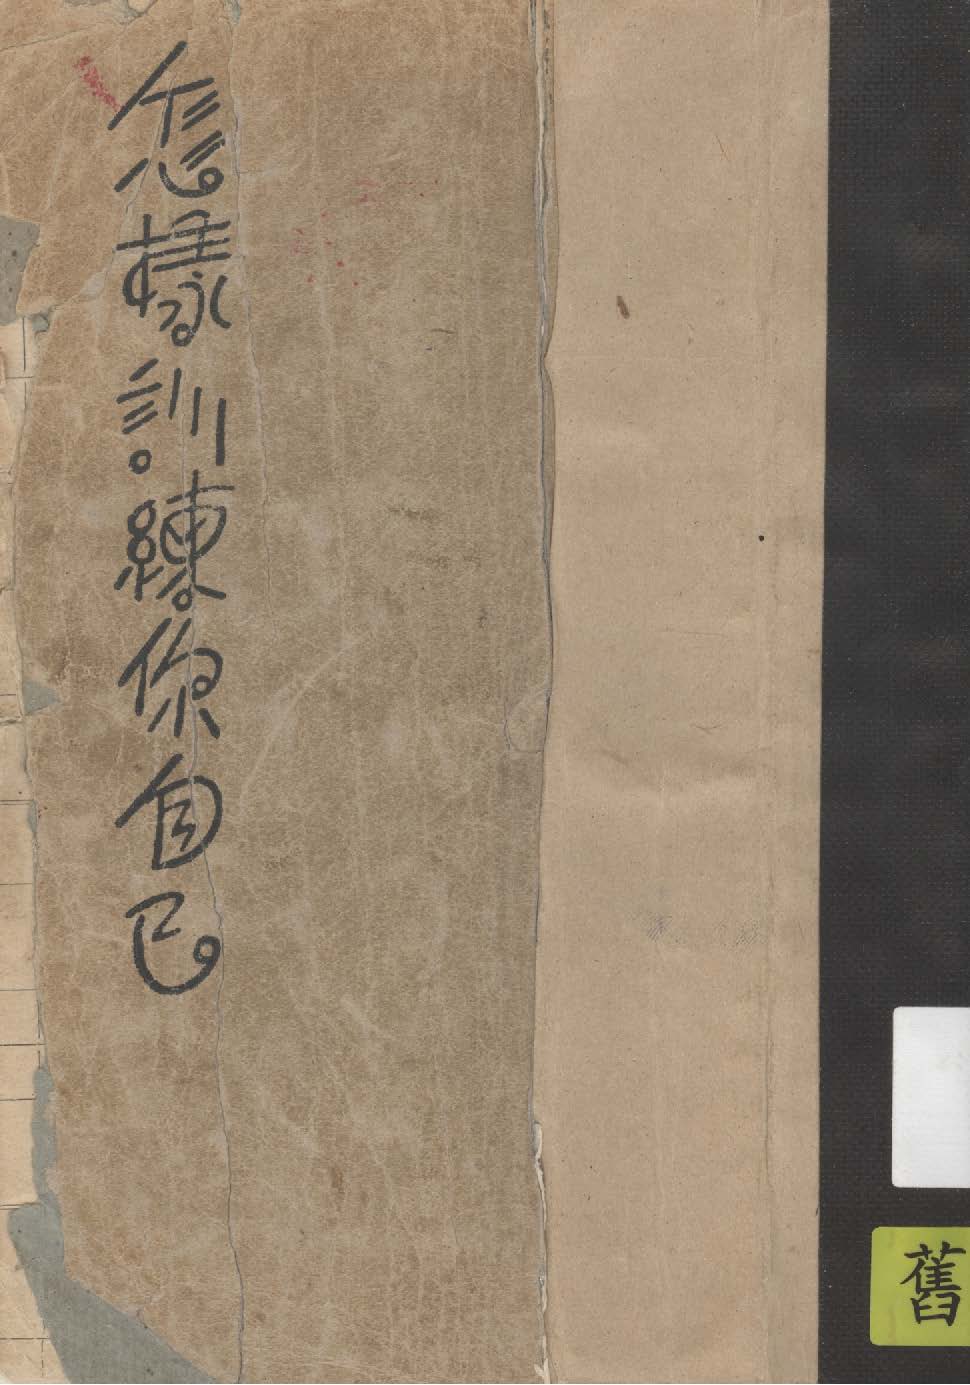 怎樣訓練你自己
舊